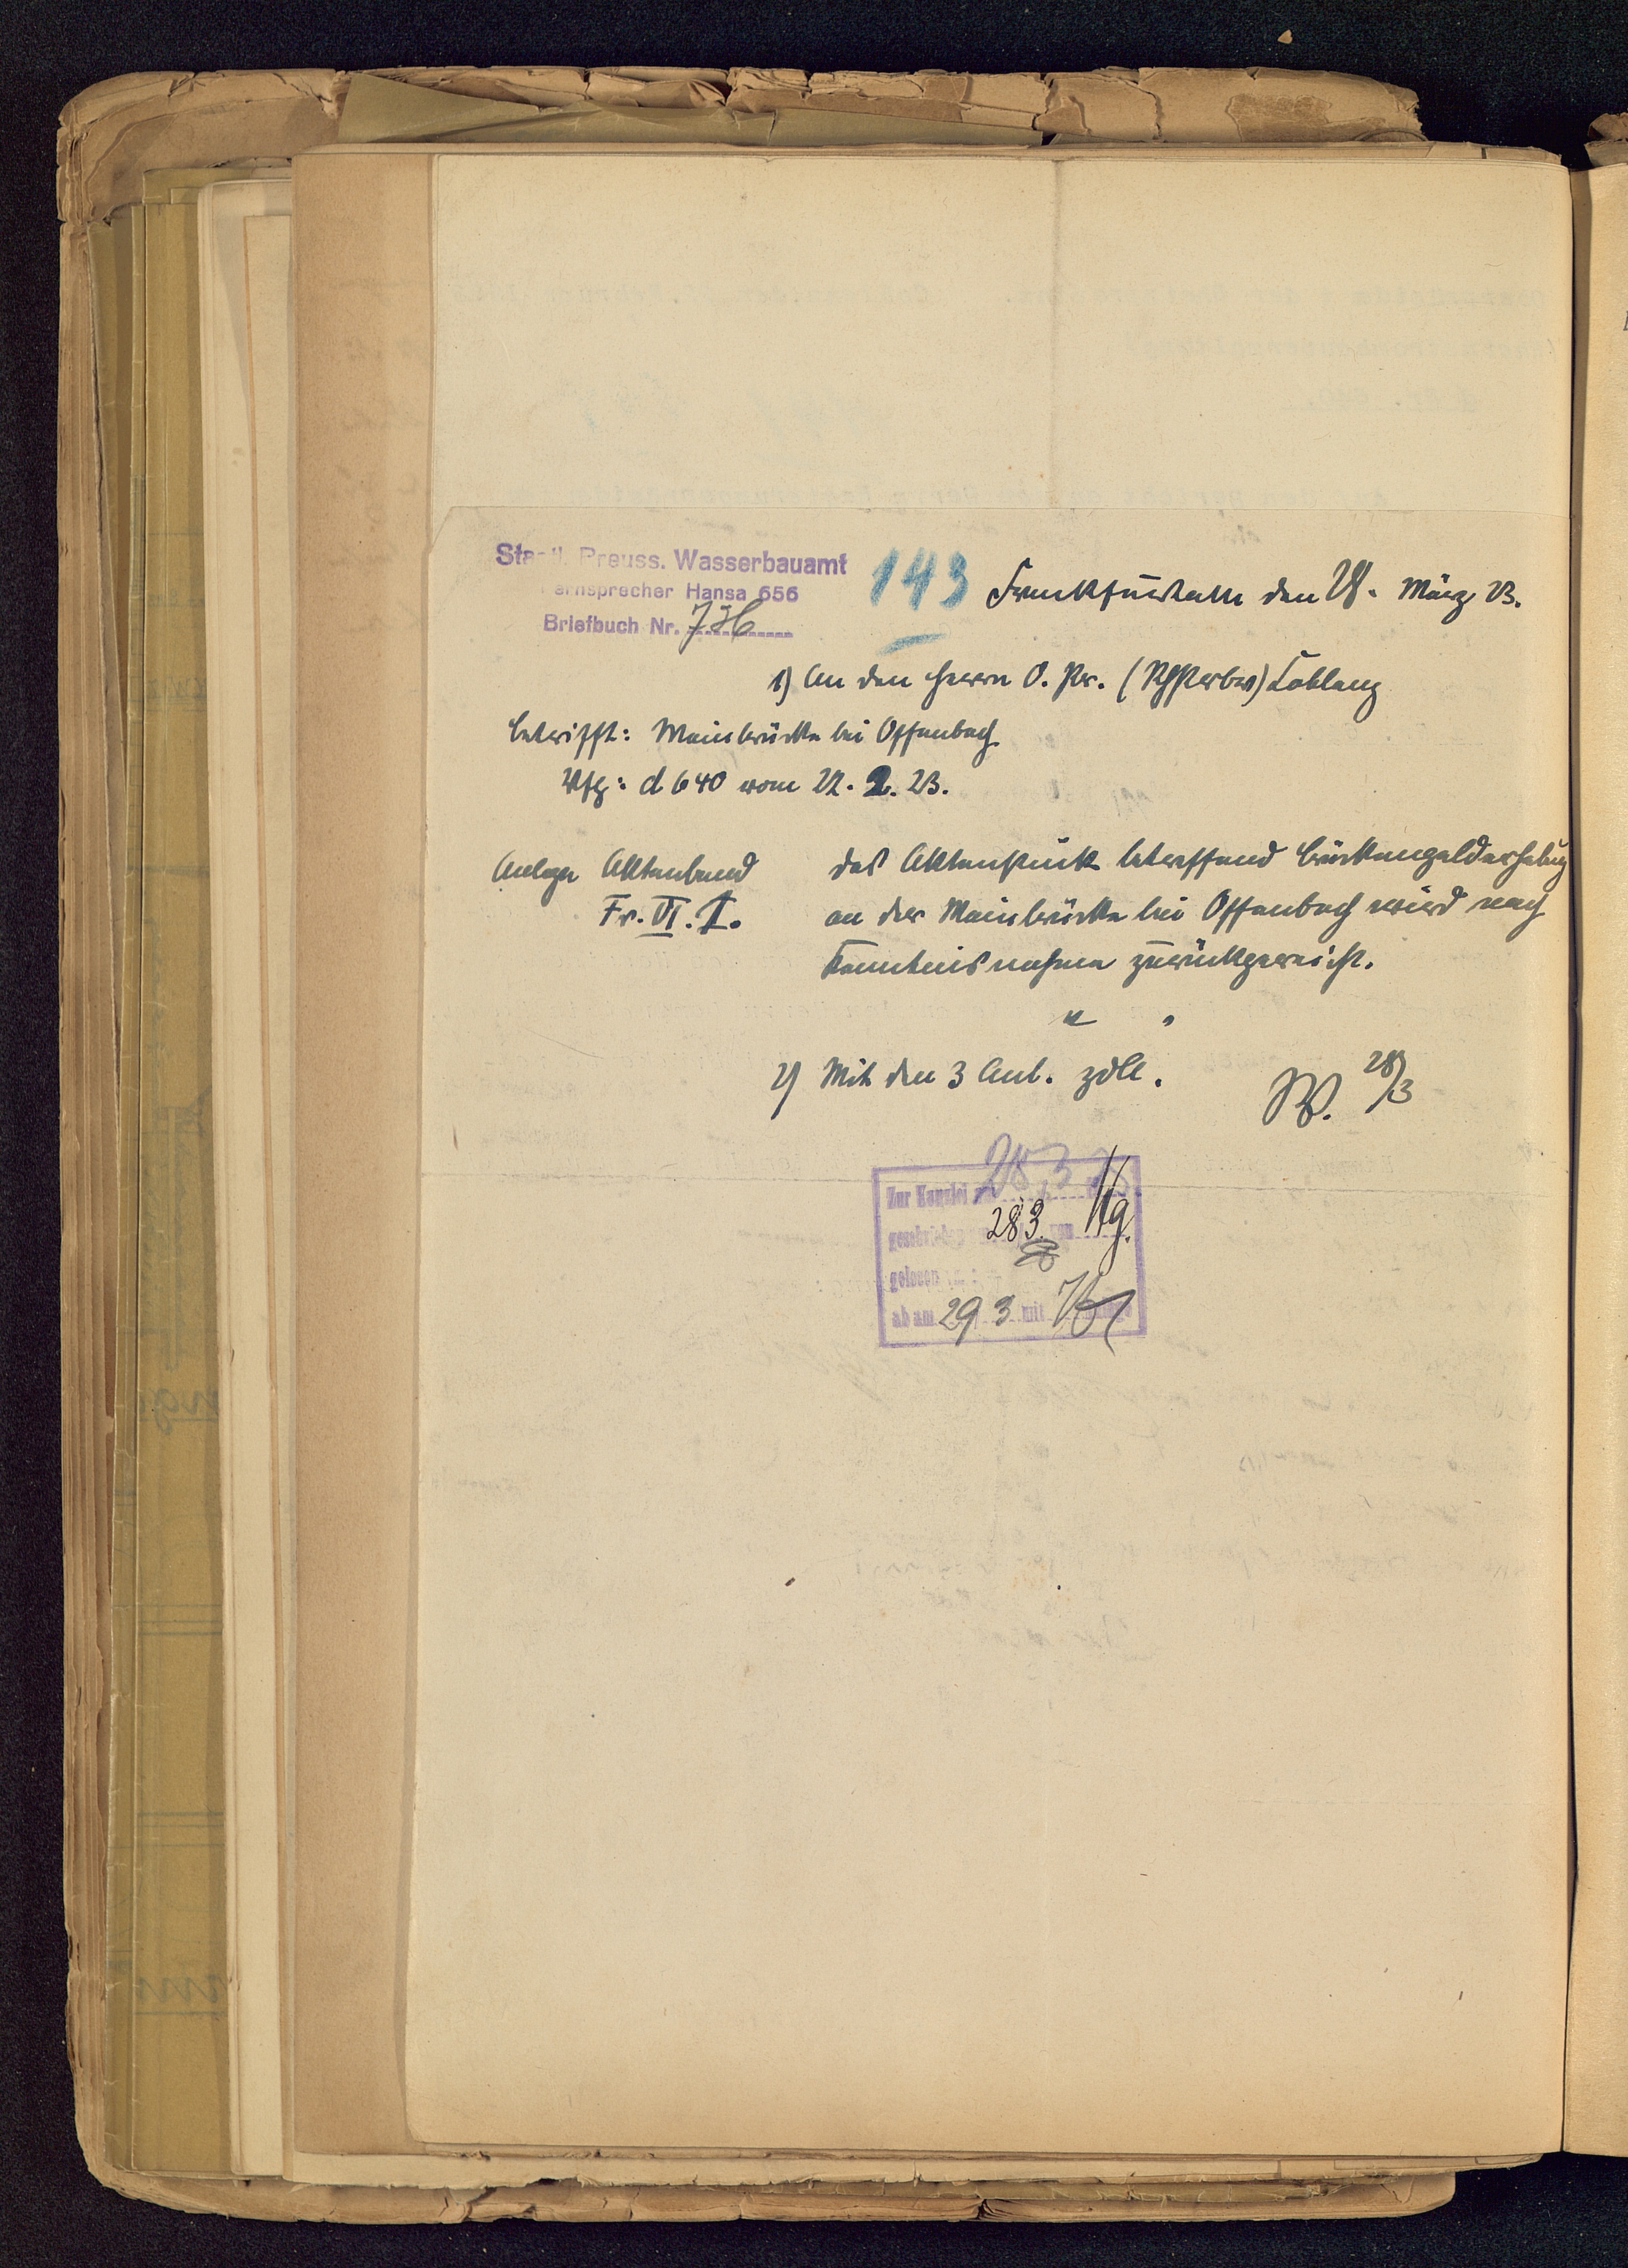 Staatl. Preuss. Wasserbauamt
Fernsprecher Hansa 656
Briefbuch Nr. 736
143
Frankfurtam den 28. März 23.
1) An den Herrn O. Pr. (RhStrbv) Coblenz
betrifft: Mainbrücke bei Offenbach
Vfg: d 640 vom 22. 2. 23.
Anlage Aktenband
Fr. VI. I.
das Aktenstück betreffend Brückengelderhebung
an der Mainbrücke bei Offenbach wird nach
Kenntnisnahme zurückgereicht.
2) Mit den 3 Anl. zdA.
W. 28/3
Zur Kanzlei am 28.3.
geschrieben 28 3. von Hg.
gelesen
ab am 29 3 mit